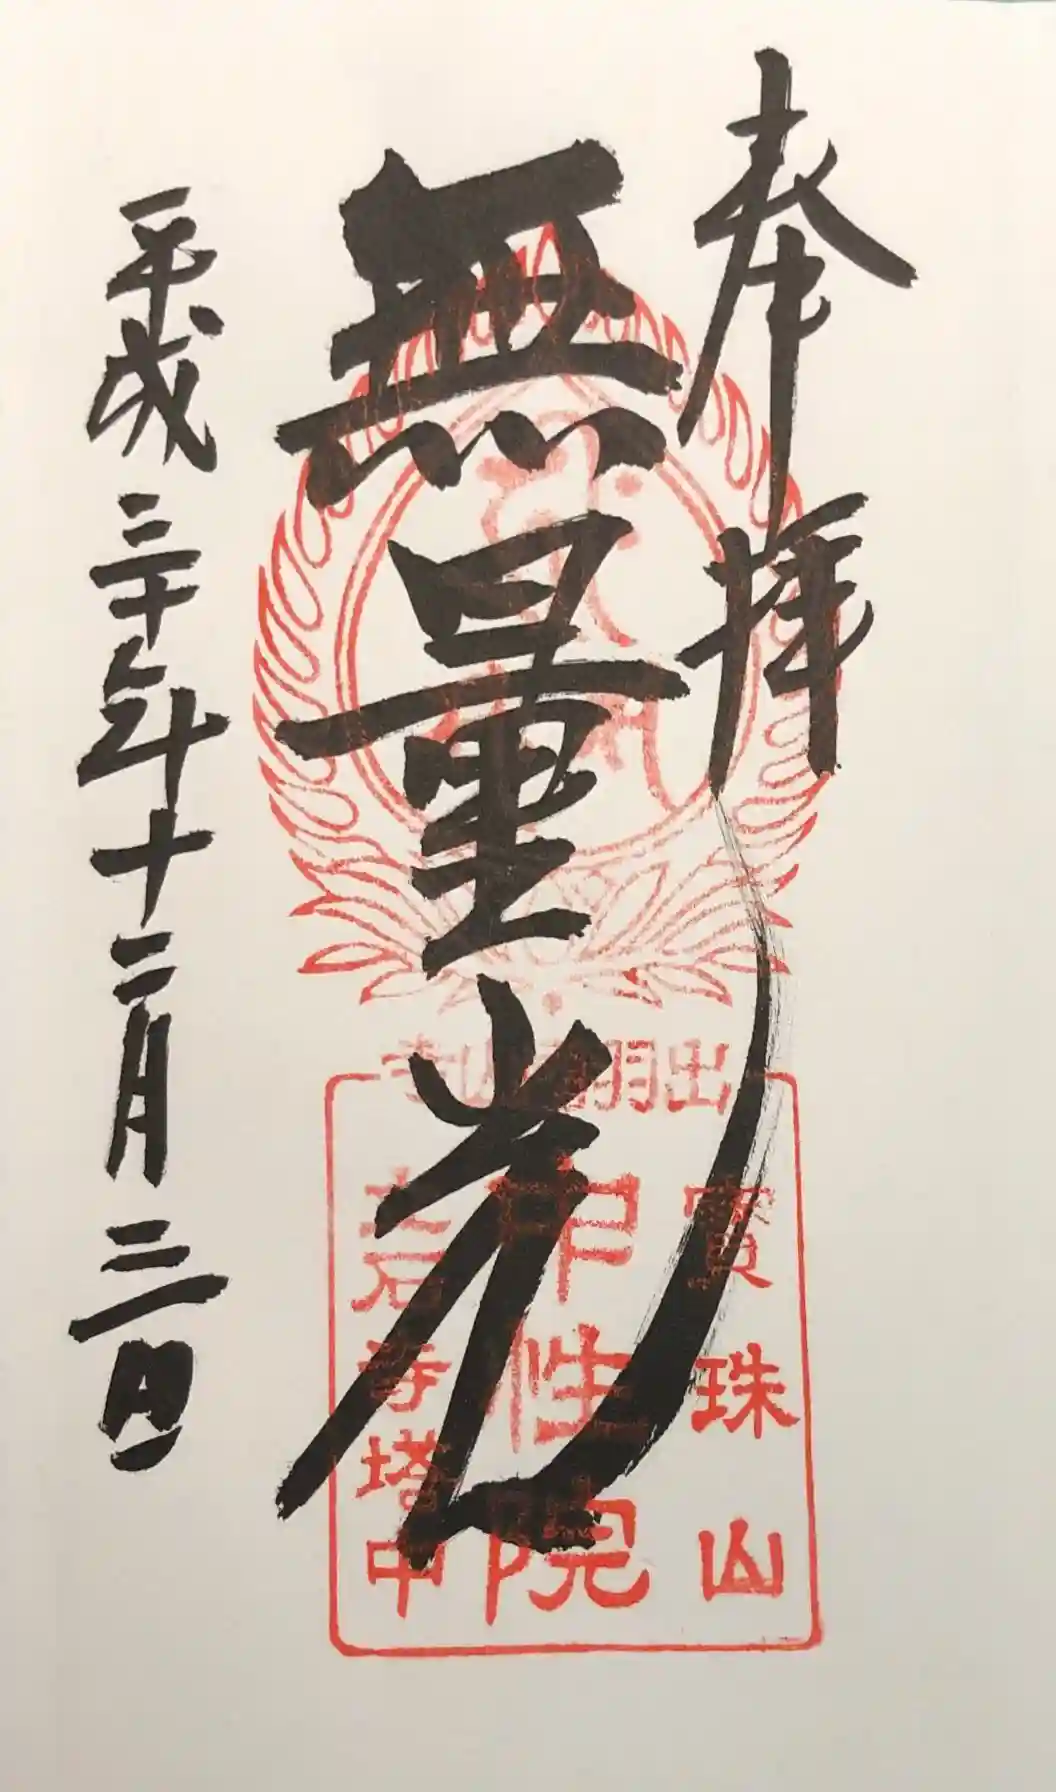 奉拝
無量光
平成三十年十二月三日
出羽 山寺
寶珠山
中性院
立石寺塔中